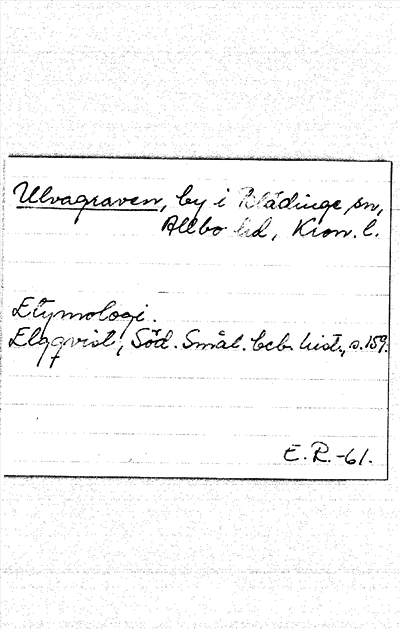 Ulvagraven, by i Blädinge sn,
Allbo hd, Kron. l.
Etymologi.
Elqqvist, Söd. Smål. beb. hist., s. 159.
E. R. -61.